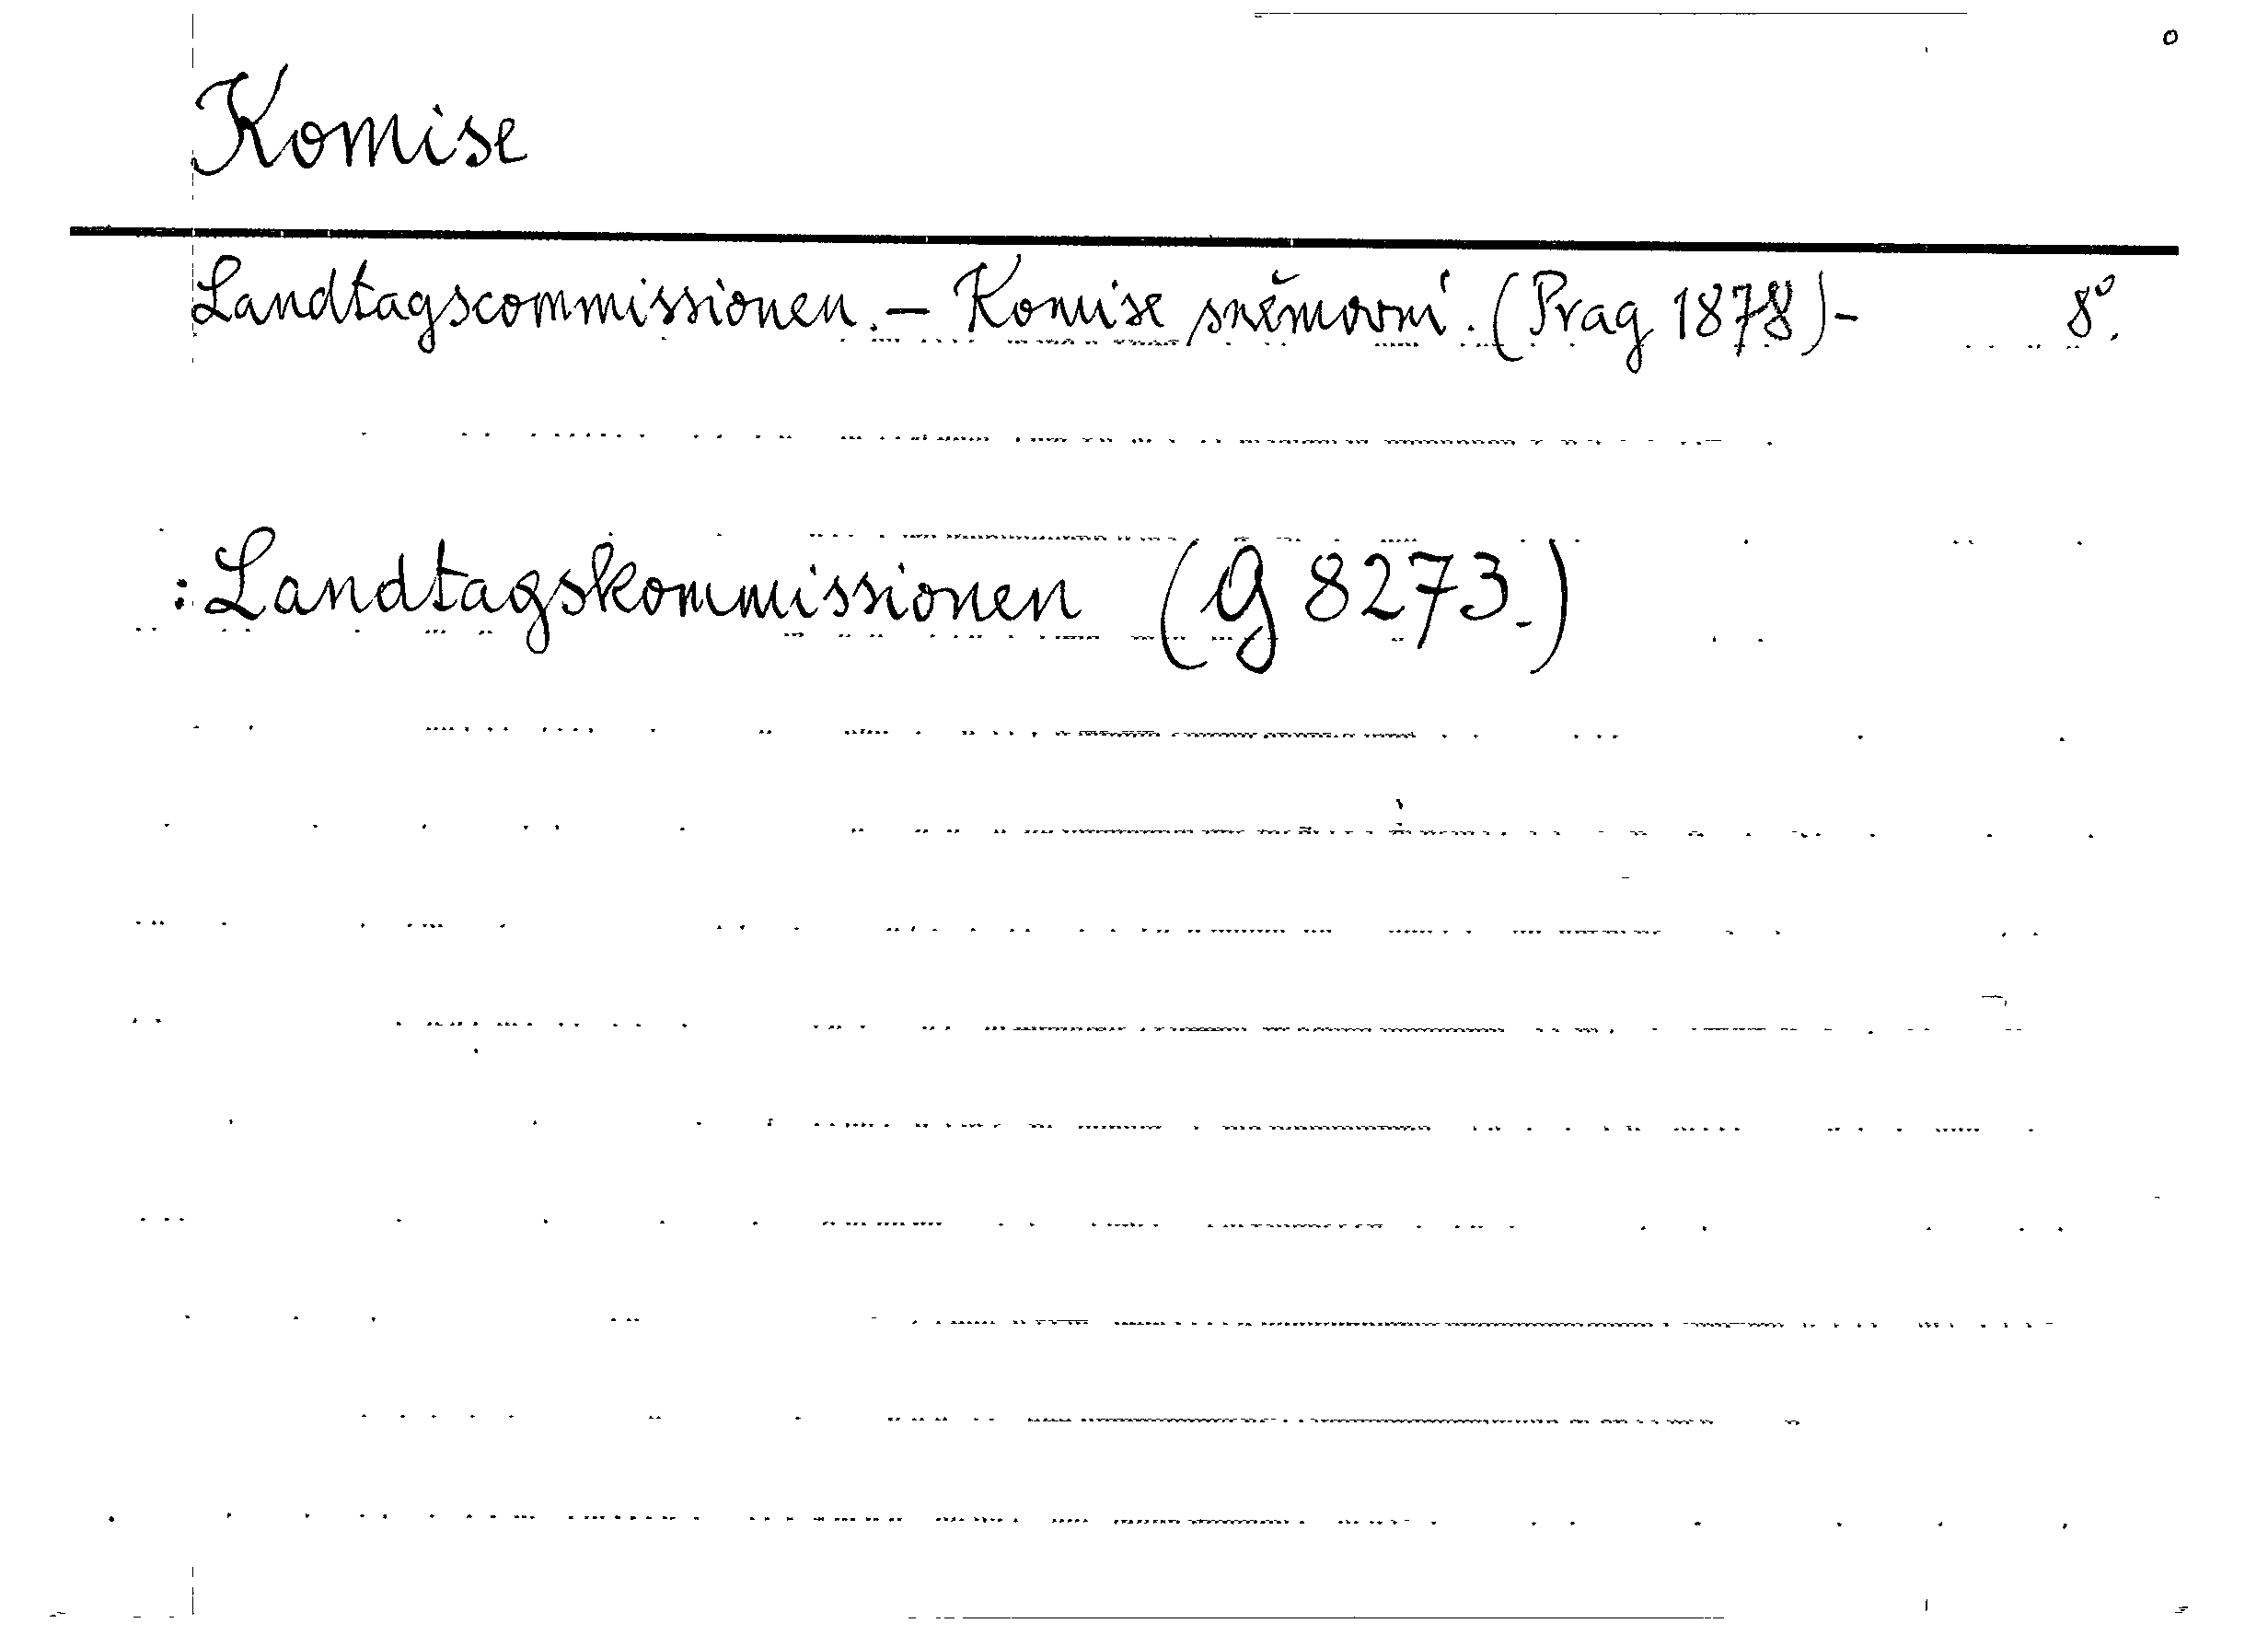 Komise
Landtagscommissionen. — Komise sněmovní. (Prag 1878) - 8°.
: Landtagskommissionen (G 8273.)